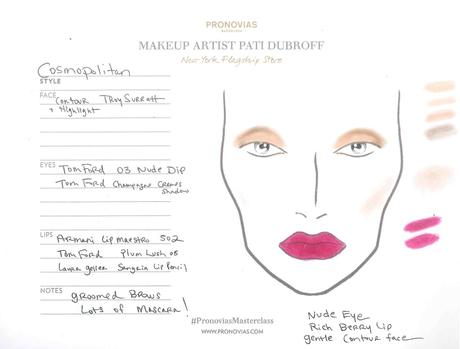 PRONOVIAS
BARCELONA
MAKEUP ARTIST PATI DUBROFF
New York Flagship Store
Cosmopolitan
STYLE
FACE
Contour Troy Surratt
+ Highlight
EYES
Tom Ford 03 Nude Dip
Tom Ford Champagne Creme
Shadow
LIPS
Armani Lip Maestro 502
Tom Ford Plum Lush 08
Laura Geller Sangria Lip Pencil
NOTES
groomed Brows
Lots of Mascara!
#PronoviasMasterclass
WWW.PRONOVIAS.COM
Nude Eye
Rich Berry Lip
gentle Contour face